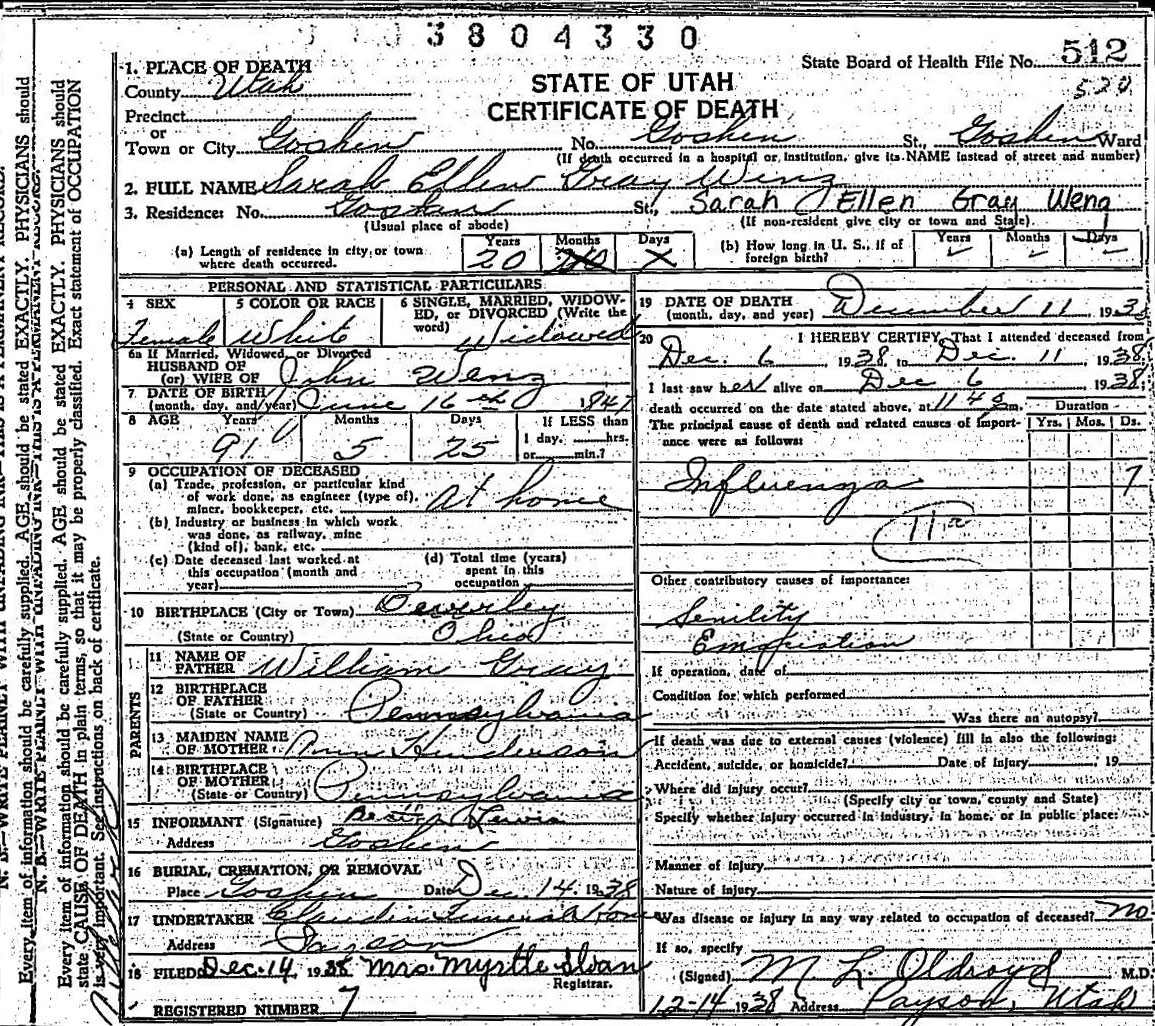 3804330
State Board of Health File No. 512
520
STATE OF UTAH
CERTIFICATE OF DEATH
1. PLACE OF DEATH
County Utah
Precinct
or
Town or City Goshen No. Goshen St., Goshen Ward
(If death occurred in a hospital or institution, give its NAME instead of street and number)
2. FULL NAME Sarah Ellen Gray Weng
3. Residence: No. Goshen St., Sarah Ellen Gray Weng
(Usual place of abode) (If non-resident give city or town and State)
(a) Length of residence in city or town where death occurred. Years 20 Months Days X
(b) How long in U. S., if of foreign birth? Years Months Days
PERSONAL AND STATISTICAL PARTICULARS
4 SEX Female
5 COLOR OR RACE White
6 SINGLE, MARRIED, WIDOWED, or DIVORCED (Write the word) Widowed
6a If Married, Widowed, or Divorced
HUSBAND OF
(or) WIFE OF John Weng
7 DATE OF BIRTH
(month, day, and year) June 16th 1847
8 AGE Years 91 Months 5 Days 25 If LESS than
1 day, hrs.
or min.?
9 OCCUPATION OF DECEASED
(a) Trade, profession, or particular kind
of work done, as engineer (type of),
miner, bookkeeper, etc. At home
(b) Industry or business in which work
was done, as railway, mine
(kind of), bank, etc.
(c) Date deceased last worked at
this occupation (month and
year)
(d) Total time (years)
spent in this
occupation
10 BIRTHPLACE (City or Town) Beverley
(State or Country) Ohio
PARENTS
11 NAME OF
FATHER William Gray
12 BIRTHPLACE
OF FATHER
(State or Country) Pennsylvania
13 MAIDEN NAME
OF MOTHER Ann Henderson
14 BIRTHPLACE
OF MOTHER
(State or Country) Pennsylvania
15 INFORMANT (Signature) Lewis
Address Goshen
16 BURIAL, CREMATION, OR REMOVAL
Place Goshen Date Dec. 14, 1938
17 UNDERTAKER Funeral Home
Address Payson
18 FILED Dec. 14, 1938 Mrs. Myrtle Sloan
Registrar.
REGISTERED NUMBER 7
19 DATE OF DEATH
(month, day, and year) December 11 1938
20 I HEREBY CERTIFY, That I attended deceased from
Dec. 6 1938, to Dec. 11, 1938;
I last saw her alive on Dec 6 1938;
death occurred on the date stated above, at m.
Duration
The principal cause of death and related causes of importance were as follows: Yrs. Mos. Ds.
Influenza 7
11a
Other contributory causes of importance:
Senility
Emaciation
If operation, date of
Condition for which performed
Was there an autopsy?
If death was due to external causes (violence) fill in also the following:
Accident, suicide, or homicide? Date of injury 19
Where did injury occur?
(Specify city or town, county and State)
Specify whether injury occurred in industry, in home, or in public place:
Manner of injury
Nature of injury
Was disease or injury in any way related to occupation of deceased? No
If so, specify
(Signed) M. L. Oldroyd M.D.
12-14 1938 Address Payson, Utah
N. B.—WRITE PLAINLY WITH UNFADING INK—THIS IS A PERMANENT RECORD.
Every item of information should be carefully supplied. AGE should be stated EXACTLY. PHYSICIANS should
state CAUSE OF DEATH in plain terms, so that it may be properly classified. Exact statement of OCCUPATION
is very important. See instructions on back of certificate.